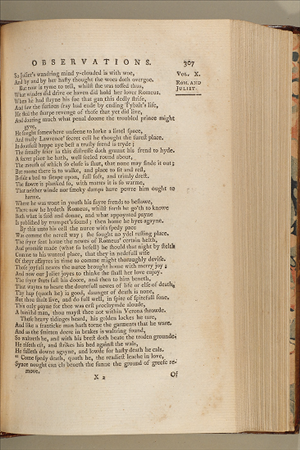 OBSERVATIONS. 367
VOL. X.
ROM. AND
JULIET.
So Juliet's wandring mind y-clouded is with woe,
And by and by her hasty thought the woes doth overgoe.
But now is tyme to tell, whilst she was tossed thus,
What windes did drive or haven did hold her lover Romeus.
When he had slayne his foe that gan this dedly strife,
And saw the furious fray had ende by ending Tybalt's life,
He fled the sharpe revenge of those that yet did live,
And douting much what penal doome the troubled prince might
gyve,
He sought somewhere unseene to lurke a littel space,
And trusty Lawrence' secret cell he thought the surest place.
In doutfull happe aye best a trusty frend is tryde;
The frendly frier in this distresse doth graunt his frend to hyde.
A secret place he hath, well seeled round about,
The mouth of which so close is shut, that none may finde it out;
But roome there is to walke, and place to sit and rest,
Beside a bed to sleape upon, full soft, and trimly drest.
The flowre is planked so, with mattes it is so warme,
That neither winde nor smoky damps have powre him ought to
harme.
Where he was wont in youth his fayre frends to bestowe,
There now he hydeth Romeus, whilst forth he go'th to knowe
Both what is said and donne, and what appoynted payne
Is published by trumpet's sound; then home he hyes agayne.
By this unto his cell the nurce with spedy pace
Was comme the nerest way; she sought no ydel resting place.
The fryer sent home the newes of Romeus' certain helth,
And promise made (what so befell) he should that night by stelth
Comme to his wonted place, that they in nedefull wise
Of theyr affayres in time to comme might thoroughly devise.
Those joyfull newes the nurce brought home with merry joy;
And now our Juliet joyes to thinke she shall her love enjoy.
The fryer shuts fast his doore, and then to him beneth,
That waytes to heare the doutefull newes of life or else of death,
Thy hap (quoth he) is good, daunger of death is none,
But thou shalt live, and do full well, in spite of spitefull fone.
This only payne for thee was erst proclaymde aloude,
A banishd man, thou mayst thee not within Verona shroude.
These heavy tidinges heard, his golden lockes he tare,
And like a franticke man hath torne the garments that he ware.
And as the smitten deere in brakes is waltring found,
So waltreth he, and with his brest doth beate the troden grounde;
He riseth eft, and strikes his hed against the wals,
He falleth downe agayne, and lowde for hasty death he cals.
" Come spedy death, quoth he, the readiest leache in love,
Synce nought can els beneth the sunne the ground of greefe re-
move.
X 2 Of